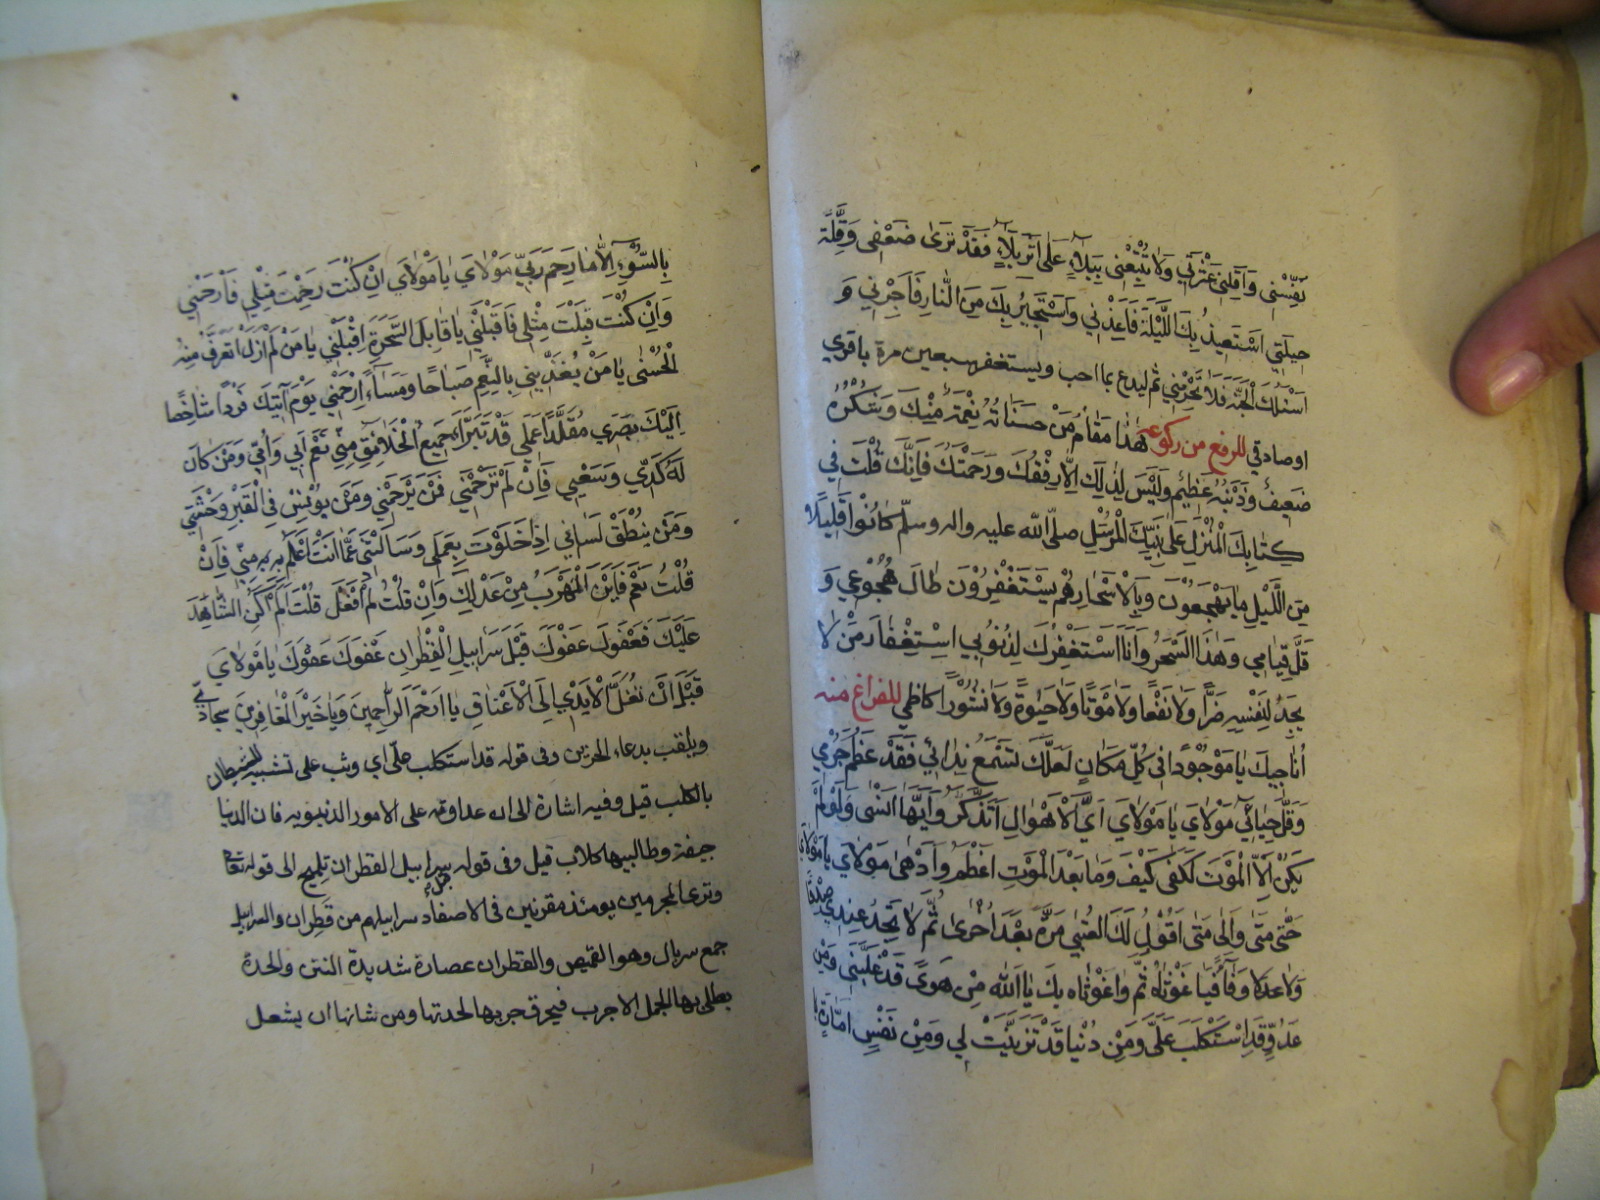 نَفْسٖى وَاَقِلْنِي عَثْرَتٖي وَلا تُتْبِعْنٖى بِبَلاٰءٍ عَلىٰ اَثَرِ بَلاٰءٍ فَقَدْ تَرىٰ ضَعْفٖى وَقِلَّةَ
حيلَتٖي اَسْتَعيذُ بِكَ اللَّيْلَةَ فَاَعِذْنٖي وَاَسْتَجيرُ بِكَ مِنَ النّٰارِ فَاَجِرْنٖي وَ
اَسْئَلُكَ الْجَنَّةَ فَلاٰ تَحْرِمْنٖي ثم ليدع بما احب ويستغفر سبعين مرة باقري
او صادقي للرفع من ركوعه هٰذٰا مَقٰامُ مَنْ حَسَنٰاتُهُ نِعْمَةٌ مِنْكَ وَشُكْرُهُ
ضَعيفٌ وَذَنْبُهُ عَظيٖمٌ وَلَيْسَ لِذٰلِكَ اِلاّٰ رِفْقُكَ وَرَحْمَتُكَ فَاِنَّكَ قُلْتَ فٖي
كِتٰابِكَ الْمُنْزَلِ عَلىٰ نَبِيِّكَ الْمُرْسَلِ صلّى الله عليه واله وسلّم كٰانُوْا قَلٖيلًا
مِنَ اللَّيْلِ مٰا يَهْجَعُونَ وَبِالْاَسْحٰارِ هُمْ يَسْتَغْفِرُوْنَ طٰالَ هُجُوْعٖي وَ
قَلَّ قِيٰامٖي وَهٰذَا السَّحَرُ وَاَنَا اَسْتَغْفِرُكَ لِذُنُوْبٖي اسْتِغْفٰارَ مَنْ لاٰ
يَجِدُ لِنَفْسِهِ ضَرًّا وَلاٰ نَفْعًا وَلاٰ مَوْتًا وَلاٰ حَيٰوةً وَلاٰ نُشُوْرًا كاظمي للفراغ منه
اُنٰاجيٖكَ يٰا مَوْجُوْدًا فٖي كُلِّ مَكٰانٍ لَعَلَّكَ تَسْمَعُ نِدٰائٖي فَقَدْ عَظُمَ جُرْمٖي
وَقَلَّ حَيٰائٖي مَوْلاٰيَ يٰا مَوْلاٰيَ اَيَّ الْاَهْوٰالِ اَتَذَكَّرُ وَاَيَّهَا اَنْسٰى وَلَوْ لَمْ
يَكُنْ اِلاَّ الْمَوْتُ لَكَفىٰ كَيْفَ وَمٰا بَعْدَ الْمَوْتِ اَعْظَمُ وَاَدْهىٰ مَوْلاٰيَ يٰا مَوْلاٰيَ
حَتّٰى مَتىٰ وَاِلىٰ مَتىٰ اَقُوْلُ لَكَ الْعُتْبىٰ مَرَّةً بَعْدَ اُخْرىٰ ثُمَّ لاٰ تَجِدُ عِنْدٖي صِدْقًا
وَلاٰ وَفٰاءً فَيٰا غَوْثٰاهُ ثُمَّ وٰا غَوْثٰاه بِكَ يٰا اَللهُ مِنْ هَوىً قَدْ غَلَبَنٖى وَمِنْ
عَدُوٍّ قَدِ اسْتَكْلَبَ عَلَىَّ وَمِنْ دُنْيٰا قَدْ تَزَيَّنَتْ لٖي وَمِنْ نَفْسٍ اَمّٰارَةٍ
بِالسُّوْءِ اِلاّٰ مٰا رَحِمَ رَبّٖي مَوْلاٰيَ يٰا مَوْلاٰيَ اِنْ كُنْتَ رَحِمْتَ مِثْلٖي فَارْحَمْنٖي
وَاِنْ كُنْتَ قَبِلْتَ مِثْلٖي فَاقْبَلْنٖي يٰا قٰابِلَ السَّحَرَةِ اِقْبَلْنٖي يٰا مَنْ لَمْ اَزَلْ اَتَعَرَّفُ مِنْهُ
الْحُسْنٰى يٰا مَنْ يُغَذّيٖنٖي بِالنِّعَمِ صَبٰاحًا وَمَسٰاءً اِرْحَمْنٖي يَوْمَ آتيٖكَ فَرْدًا شٰاخِصًا
اِلَيْكَ بَصَرٖي مُقَلَّدًا عَمَلٖي قَدْ تَبَرَّاَ جَميٖعُ الْخَلاٰئِقِ مِنّٖي نَعَمْ اَبٖي وَاُمّٖي وَمَنْ كٰانَ
لَهُ كَدّٖي وَسَعْيٖي فَاِنْ لَمْ تَرْحَمْنٖي فَمَنْ يَرْحَمُنٖي وَمَنْ يُوْنِسُ فِي الْقَبْرِ وَحْشَتٖي
وَمَنْ يُنْطِقُ لِسٰانٖي اِذٰا خَلَوْتُ بِعَمَلٖي وَسَاَلْتَنٖي عَمّٰا اَنْتَ اَعْلَمُ بِهِ مِنّٖي فَاِنْ
قُلْتُ نَعَمْ فَاَيْنَ الْمَهْرَبُ مِنْ عَدْلِكَ وَاِنْ قُلْتُ لَمْ اَفْعَلْ قُلْتَ اَلَمْ اَكُنِ الشّٰاهِدَ
عَلَيْكَ فَعَفْوَكَ عَفْوَكَ قَبْلَ سَرٰابيٖلِ الْقَطِرٰانِ عَفْوَكَ عَفْوَكَ يٰا مَوْلاٰيَ
قَبْلَ اَنْ تُغَلَّ الْاَيْدٖي اِلَى الْاَعْنٰاقِ يٰا اَرْحَمَ الرّٰاحِميٖنَ وَيٰا خَيْرَ الْغٰافِريٖنَ سجادي
ويلقب بدعاء الحزين وفى قوله قد استكلب علىّ اى وثب على تشبيه للشيطان
بالكلب قيل وفيه اشارة الى ان عداوته على الامور الدنيويه فان الدنيا
جيفة وطالبيها كلاب قيل وفى قوله سرابيل القطران تلميح الى قوله تعالى
وترى المجرمين يومئذ مقرنين فى الاصفاد سرابيلهم من قطران والسرابيل
جمع سربال وهو القميص والقطران عصارة شديدة النتن والحدة
يطلى بها الجمل الاجرب فيحرق جربها لحدتها ومن شانها ان يشعل